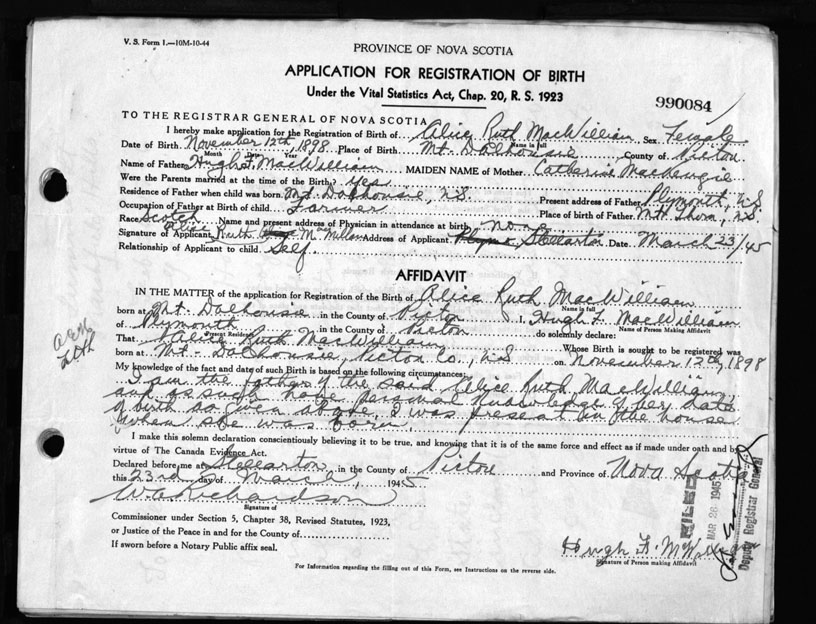 V. S. Form 1.—10M-10-44
PROVINCE OF NOVA SCOTIA
APPLICATION FOR REGISTRATION OF BIRTH
Under the Vital Statistics Act, Chap. 20, R. S. 1923
990084
TO THE REGISTRAR GENERAL OF NOVA SCOTIA
I hereby make application for the Registration of Birth of Alice Ruth MacWilliam Sex Female
Name in full
Date of Birth November 12th, 1898 Place of Birth Mt. Dalhousie County of Pictou
Month Date Year
Name of Father Hugh F. MacWilliam MAIDEN NAME of Mother Catherine MacKenzie
Were the Parents married at the time of the Birth? Yes
Residence of Father when child was born Mt. Dalhousie, N.S. Present address of Father Plymouth, N.S.
Occupation of Father at Birth of child Farmer Place of birth of Father Mt. Thom, N.S.
Race Scotch Name and present address of Physician in attendance at birth none
Signature of Applicant Alice Ruth MacMillan Address of Applicant Stellarton Date March 23/45
Relationship of Applicant to child Self.
AFFIDAVIT
IN THE MATTER of the application for Registration of the Birth of Alice Ruth MacWilliam
Name in full
born at Mt. Dalhousie in the County of Pictou I, Hugh F. MacWilliam
Name of Person Making Affidavit
of Plymouth in the County of Pictou do solemnly declare:
Present Residence
That Alice Ruth MacWilliam Whose Birth is sought to be registered was
born at Mt. Dalhousie, Pictou Co., N.S on November 12th, 1898
My knowledge of the fact and date of such Birth is based on the following circumstances:
I am the father of the said Alice Ruth MacWilliam,
and as such have personal knowledge of her date
of birth as given above, I was present in the house
when she was born.
I make this solemn declaration conscientiously believing it to be true, and knowing that it is of the same force and effect as if made under oath and by
virtue of The Canada Evidence Act.
Declared before me at Stellarton in the County of Pictou and Province of Nova Scotia
this 23rd day of March, 1945
W. A. Richardson
Signature of
Commissioner under Section 5, Chapter 38, Revised Statutes, 1923,
or Justice of the Peace in and for the County of
If sworn before a Notary Public affix seal.
Hugh F. McWilliam
Signature of Person making Affidavit
For Information regarding the filling out of this Form, see Instructions on the reverse side.
FILED
MAR 26 1945
Deputy Registrar General